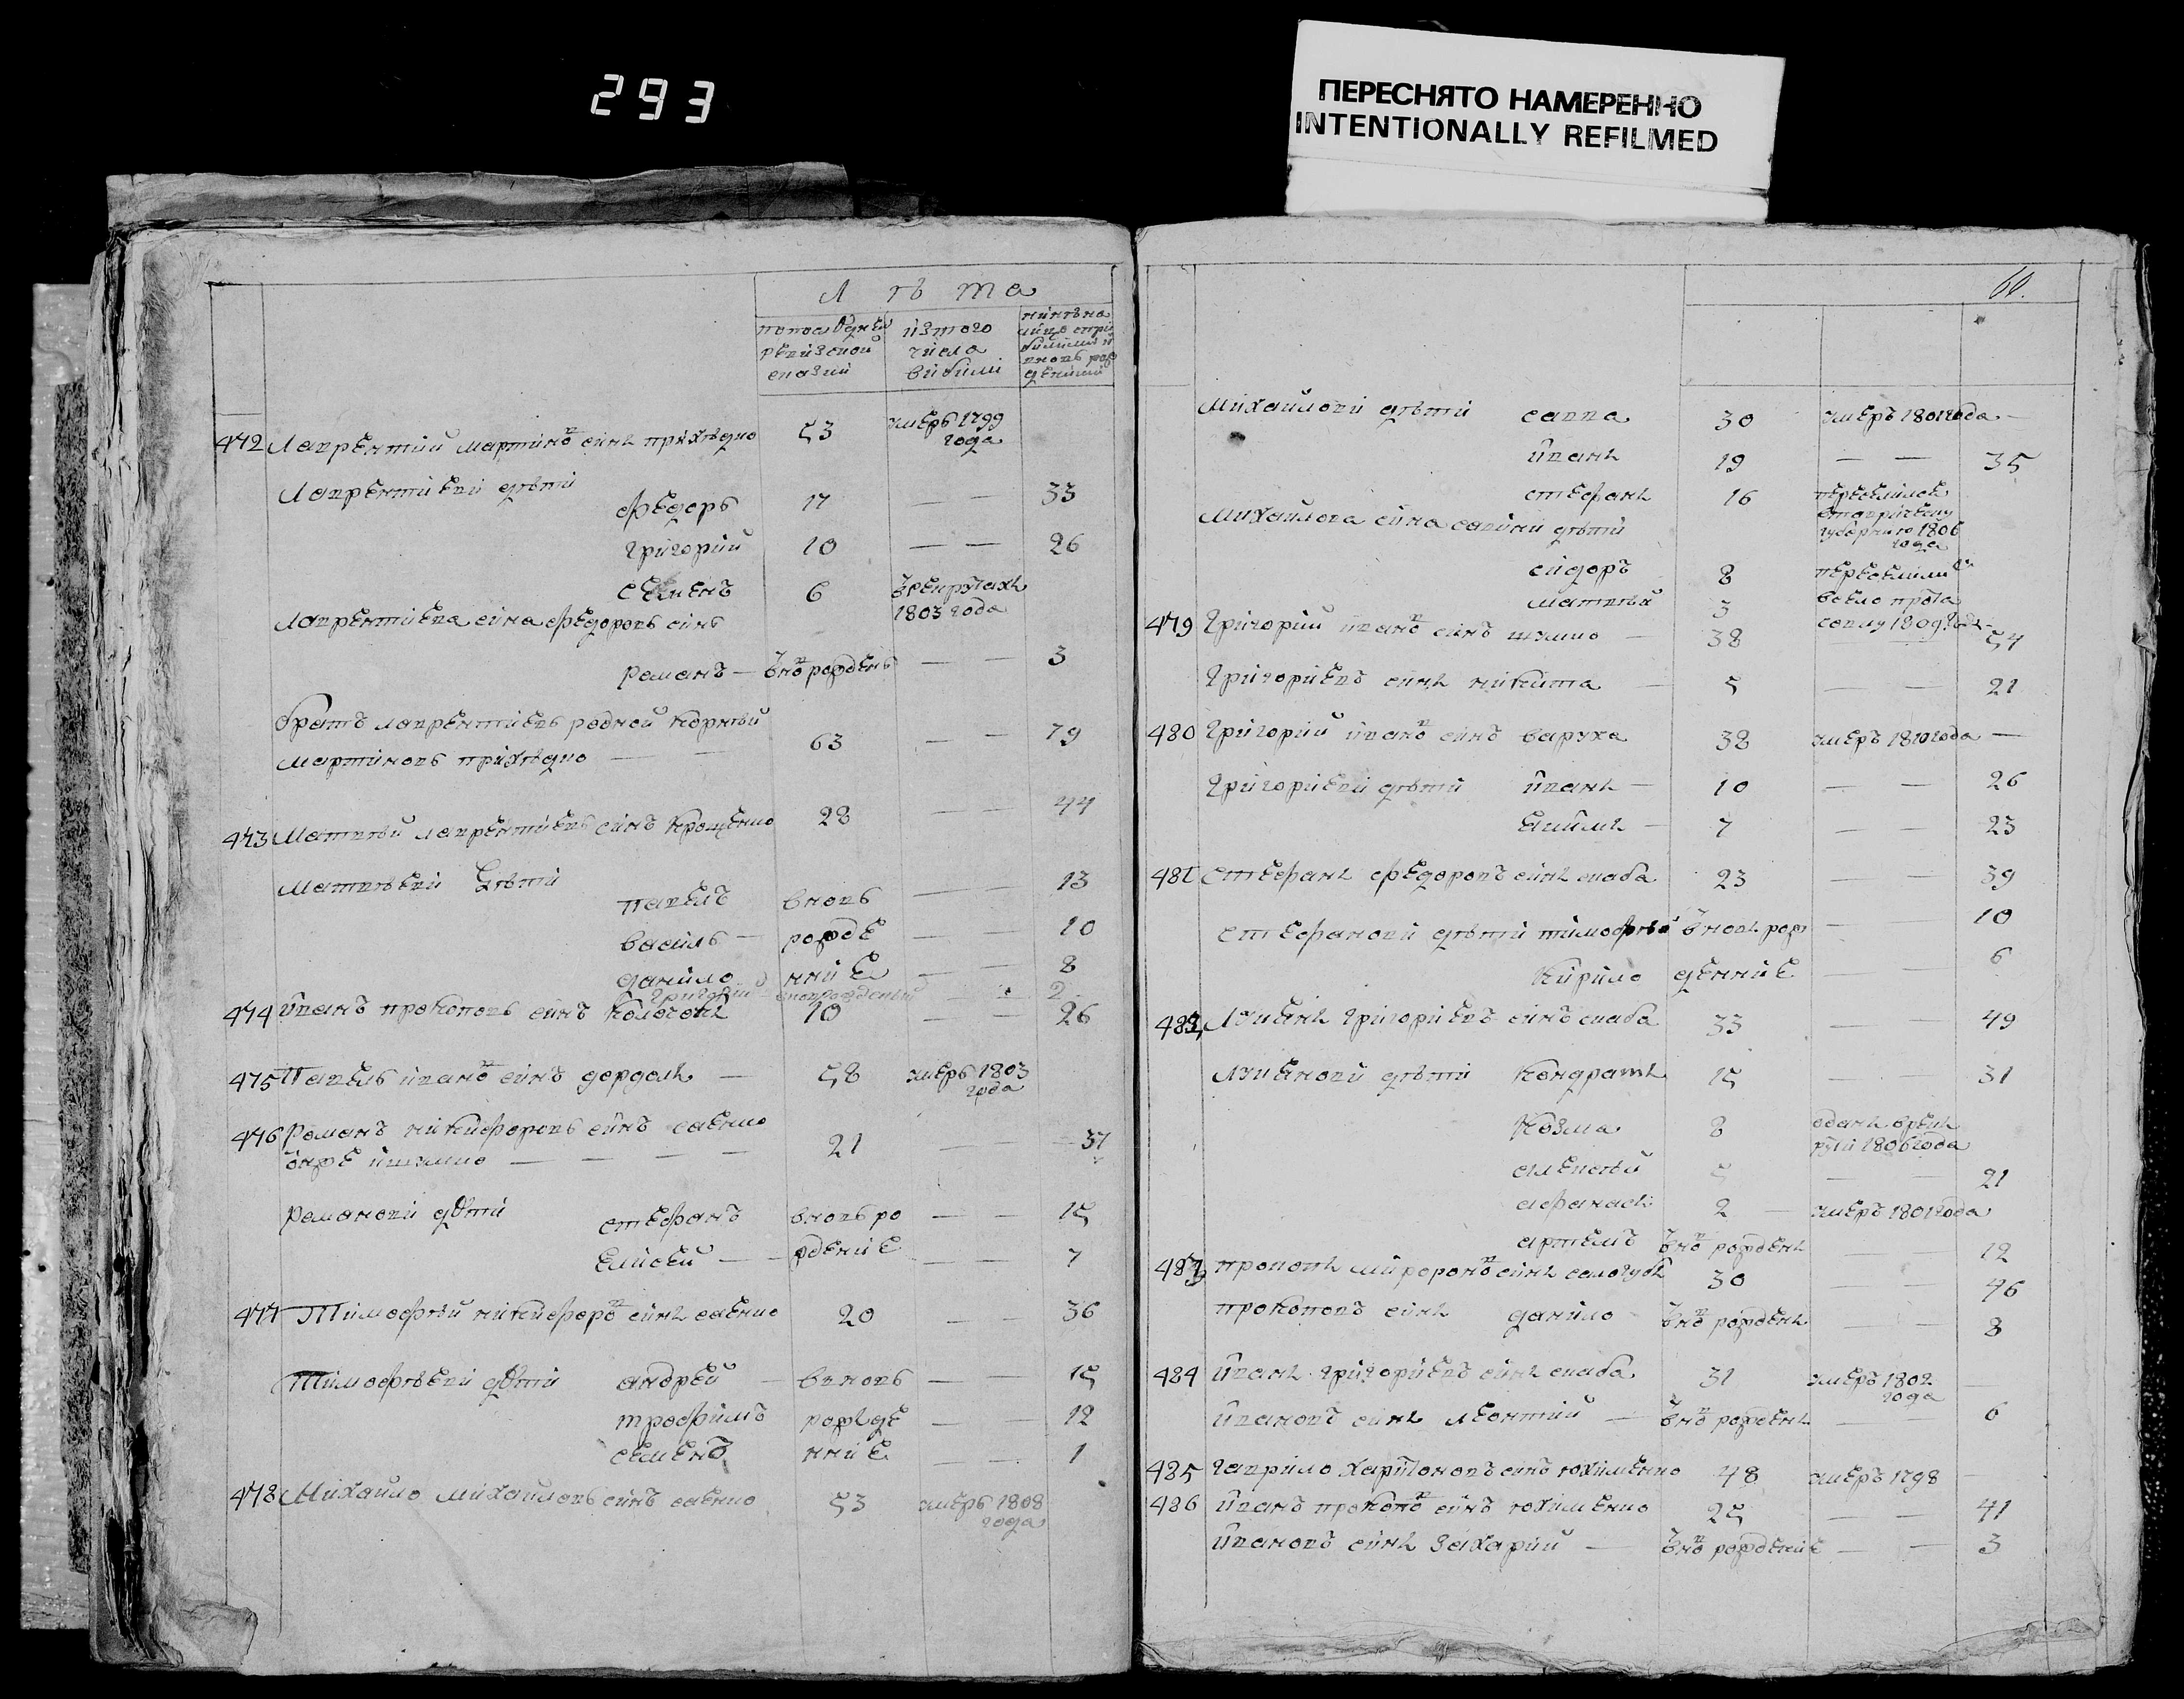 293
ПЕРЕСНЯТО НАМЕРЕННО
INTENTIONALLY REFILMED
Лѣта
попоследней ревизской сказки
изтого числа выбыли
ныне на лицо
472 Лаврентий мартинов синъ прихѣдко 53 умеръ 1799 года
Лаврентиеви дѣти
федоръ 17 — — 33
григорий 10 — — 26
семенъ 6 в рекрутахъ 1803 года
Лаврентиева сина федоровъ синъ
романъ — внов рожденъ — — 3
братъ лаврентиевъ родной корнѣй
мартиновъ прихѣдко — — 63 — — 79
473 Матвѣй лаврентиевъ синъ крощенко 28 — — 44
матвѣеви дѣти
павелъ вновь — — 13
василь — рожде — — 10
данило нние — — 8
григорий вноврожденый — — 2
474 иванъ прокоповъ синъ 10 — — 26
475 Павелъ иванов синъ дордоль — 58 умеръ 1803 года
476 Романъ никифоровъ синъ саенко
онъ же ишутко — — — — 21 — — 37
романови дѣти
стефанъ вновь ро — — 15
елисей — — ждение — — 7
477 Тимофѣй никифоров синъ саенко 20 — — 36
Тимофѣеви дѣти андрей — вновь — — 15
трофимъ рожде — — 12
семенъ нние — — 1
478 Михайло михайловъ синъ саенко 53 умеръ 1808 года
60.
михайлови дѣти савва 30 умеръ 1801 года —
иванъ 19 — — 35
стефанъ 16 переселился в таврическу губернию 1806 года
михайлова сина савини дѣти
сидоръ 8 переселили
матвѣй 3 1809 года
479 григорий иванов синъ шутко — 38 — — 54
григориевъ синъ никита — 5 — — 21
480 григорий иванов синъ варуха 38 умеръ 1810 года —
григориеви дѣти иванъ — 10 — — 26
екимъ — 7 — — 23
481 стефанъ федоровъ синъ скаба 23 — — 39
стефанови дѣти тимофѣй вновь рож — — 10
кирило денние — — 6
482 лукянъ григориевъ синъ скаба 33 — — 49
лукянови дѣти кондратъ 15 — — 31
козма 8 оданъ врекруты 1806 года
алексѣй 5 — — 21
афанасъ 2 умеръ 1801 года
артемъ внов рожденъ — 12
483 прокопъ миронов синъ самогубъ 30 — — 46
прокоповъ синъ данило внов рожденъ — — 8
484 иванъ григориевъ синъ скаба 31 умеръ 1802 года —
ивановъ синъ леонтий — внов рожденъ — 6
485 гаврило харитоновъ синъ юхименко 48 умеръ 1798 —
486 иванъ прокопов синъ юхименко 25 — — 41
ивановъ синъ захарий — внов рождение — — 3